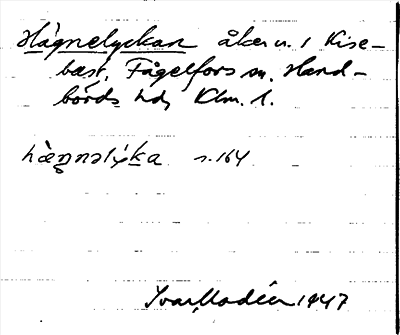 Hägnelyckan åker n. i Kise-
bäst, Fågelfors sn, Hand-
börds hd, Klm. l.
hàŋnəlýka s. 164
Ivar Modéer 1947